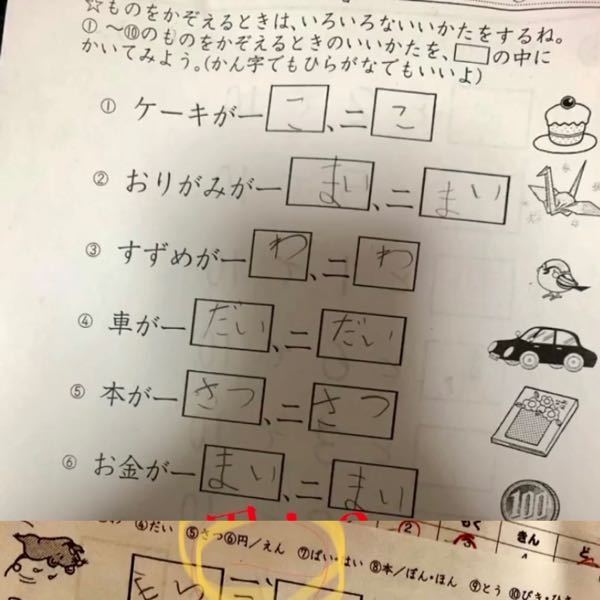 ☆ものをかぞえるときは、いろいろないいかたをするね。
①～⑩のものをかぞえるときのいいかたを、□の中に
かいてみよう。(かん字でもひらがなでもいいよ)
① ケーキが一こ、二こ
② おりがみが一まい、二まい
③ すずめが一わ、二わ
④ 車が一だい、二だい
⑤ 本が一さつ、二さつ
⑥ お金が一まい、二まい
100
④だい ⑤さつ⑥円／えん ⑦ぱい・はい ⑧本／ぽん・ほん ⑨とう ⑩ぴき・ひき
② きん ど